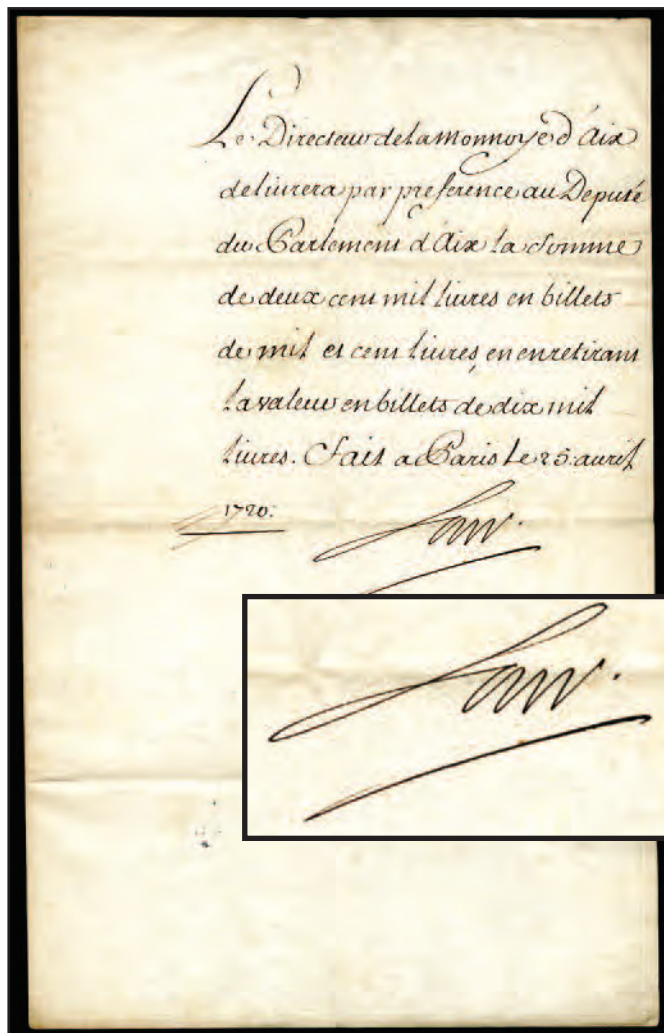 Le Directeur de la Monnoye d'Aix
delivrera par preference au Deputé
du Parlement d'Aix la somme
de deux cent mil livres en billets
de mil et cent livres, en en retirant
la valeur en billets de dix mil
livres. Fait a Paris le 25. avril
1720.
Law.
Law.